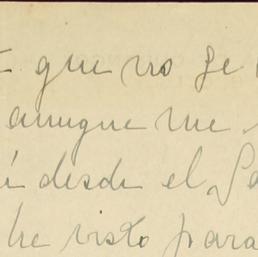 que no se
aunque me
í desde el Sa
he visto para